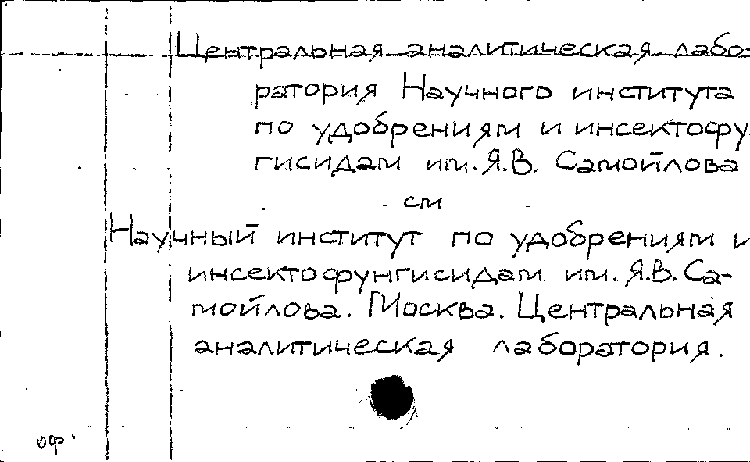 Центральная аналитическая лабо-
ратория Научного института
по удобрениям и инсектофу
гисидам им. Я.В. Самойлова
см
Научный институт по удобрениям и
инсектофунгисидам им. Я.В. Са-
мойлова. Москва. Центральная
аналитическая лаборатория.
оф